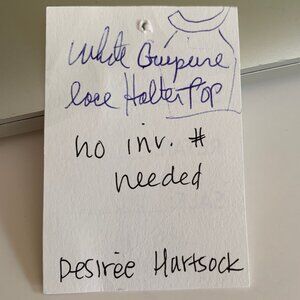 White Guipure
lace Halter Top
no inv. #
needed
Desiree Hartsock